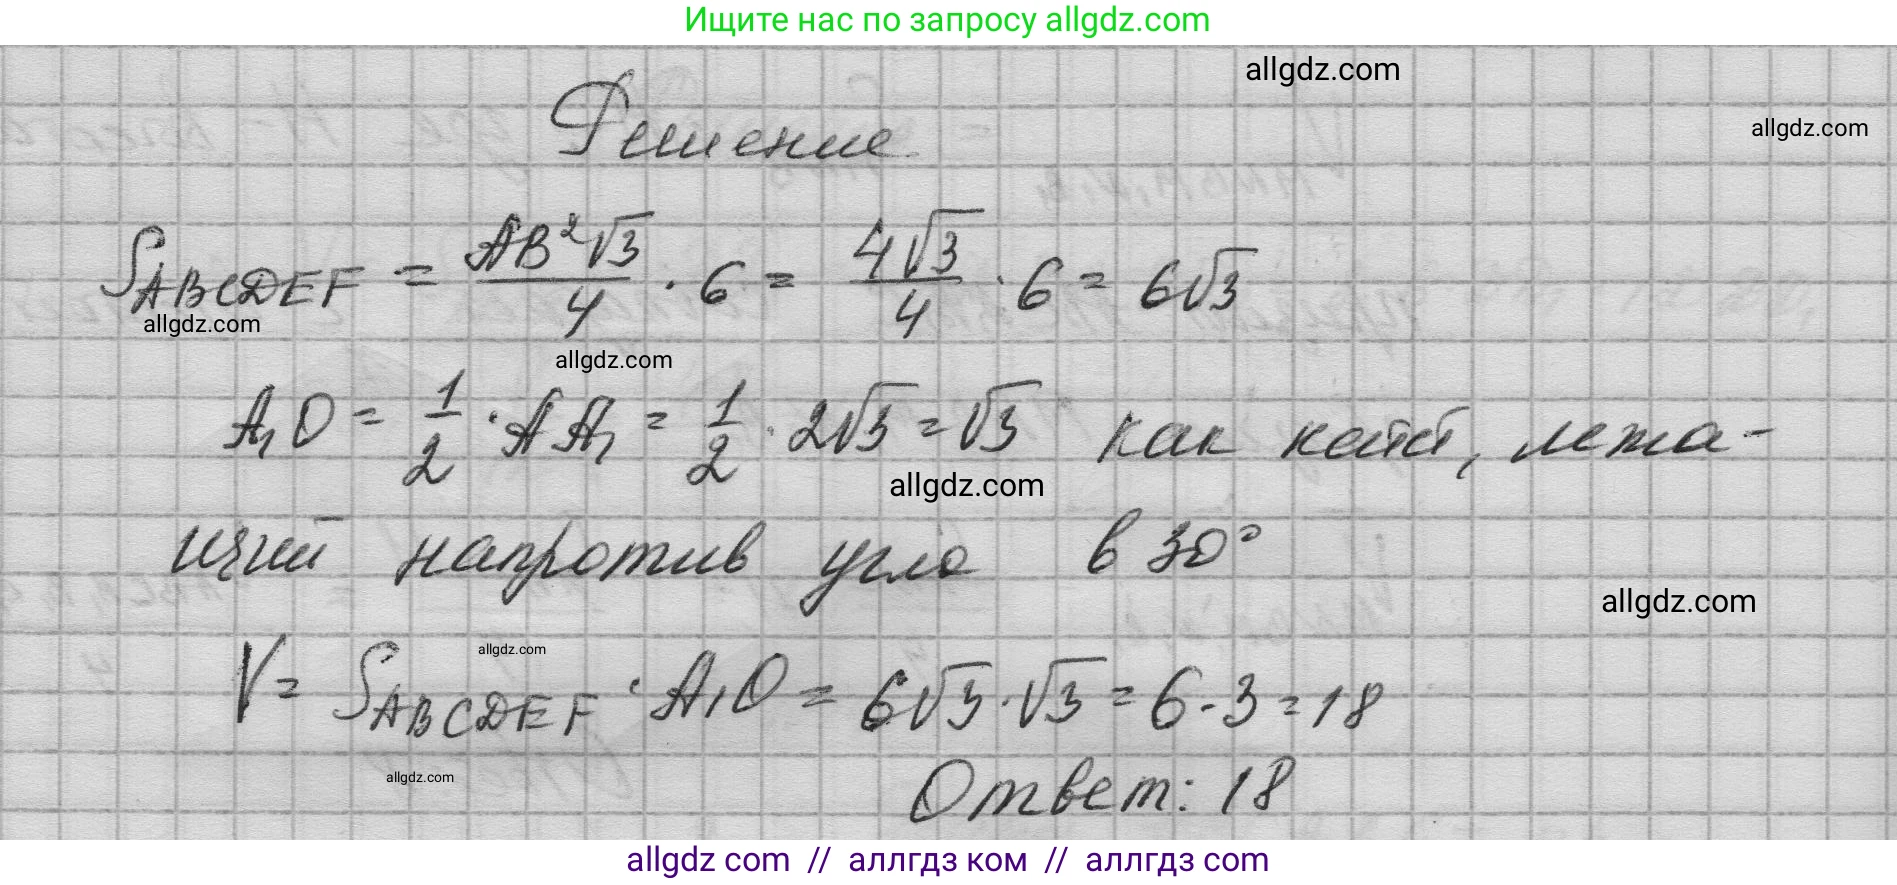 Ищите нас по запросу allgdz.com
allgdz.com
allgdz.com
Решение
S_ABCDEF = AB²√3/4 · 6 = 4√3/4 · 6 = 6√3
allgdz.com
allgdz.com
A₁O = 1/2 · AA₁ = 1/2 · 2√3 = √3 как катет, лежа-
allgdz.com
щий напротив угла в 30°
allgdz.com
allgdz.com
V = S_ABCDEF · A₁O = 6√3 · √3 = 6 · 3 = 18
allgdz.com
Ответ: 18
allgdz com // аллгдз ком // аллгдз com